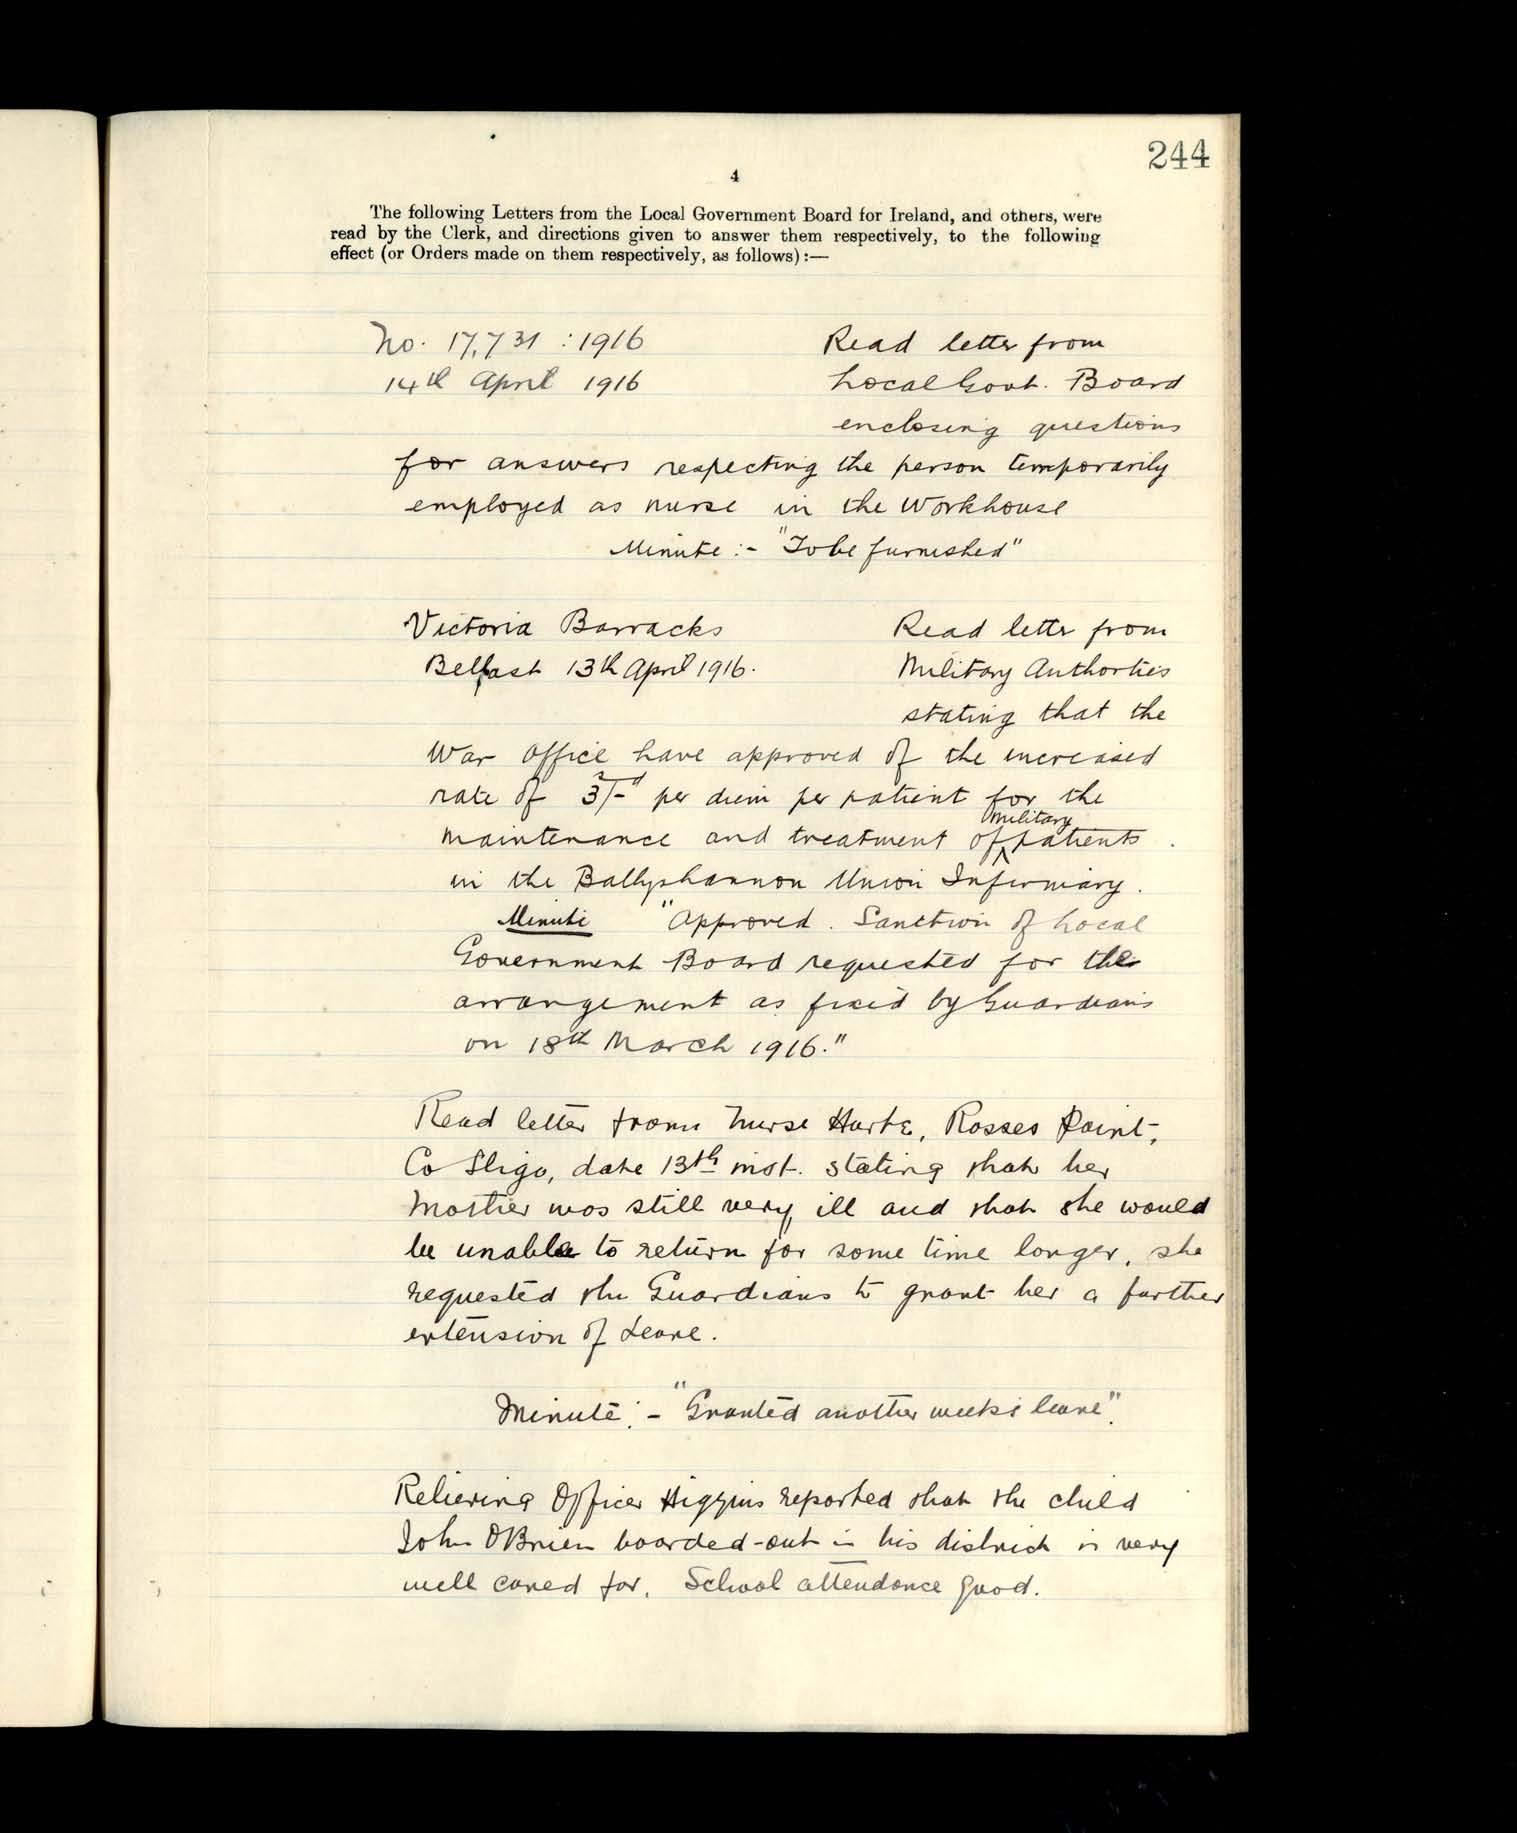 244
4
The following Letters from the Local Government Board for Ireland, and others, were
read by the Clerk, and directions given to answer them respectively, to the following
effect (or Orders made on them respectively, as follows) :—
No. 17,731 : 1916 Read letter from
14th April 1916 Local Govt. Board
enclosing questions
for answers respecting the person temporarily
employed as nurse in the Workhouse
Minute :- "To be furnished"
Victoria Barracks Read letter from
Belfast 13th April 1916. Military Authorties
stating that the
War Office have approved of the increased
rate of 3/- per diem per patient for the
maintenance and treatment of military patients.
in the Ballyshannon Union Infirmary.
Minute "Approved. Sanction of Local
Government Board requested for the
arrangement as fixed by Guardians
on 18th March 1916."
Read letter from Nurse Harte, Rosses Point,
Co Sligo, date 13th inst. stating that her
Mother was still very ill and that she would
be unable to return for some time longer, she
requested the Guardians to grant her a further
extension of Leave.
Minute :- "Granted another weeks leave".
Relieving Officer Higgins reported that the child
John OBrien boarded-out in his district is very
well cared for. School attendance good.